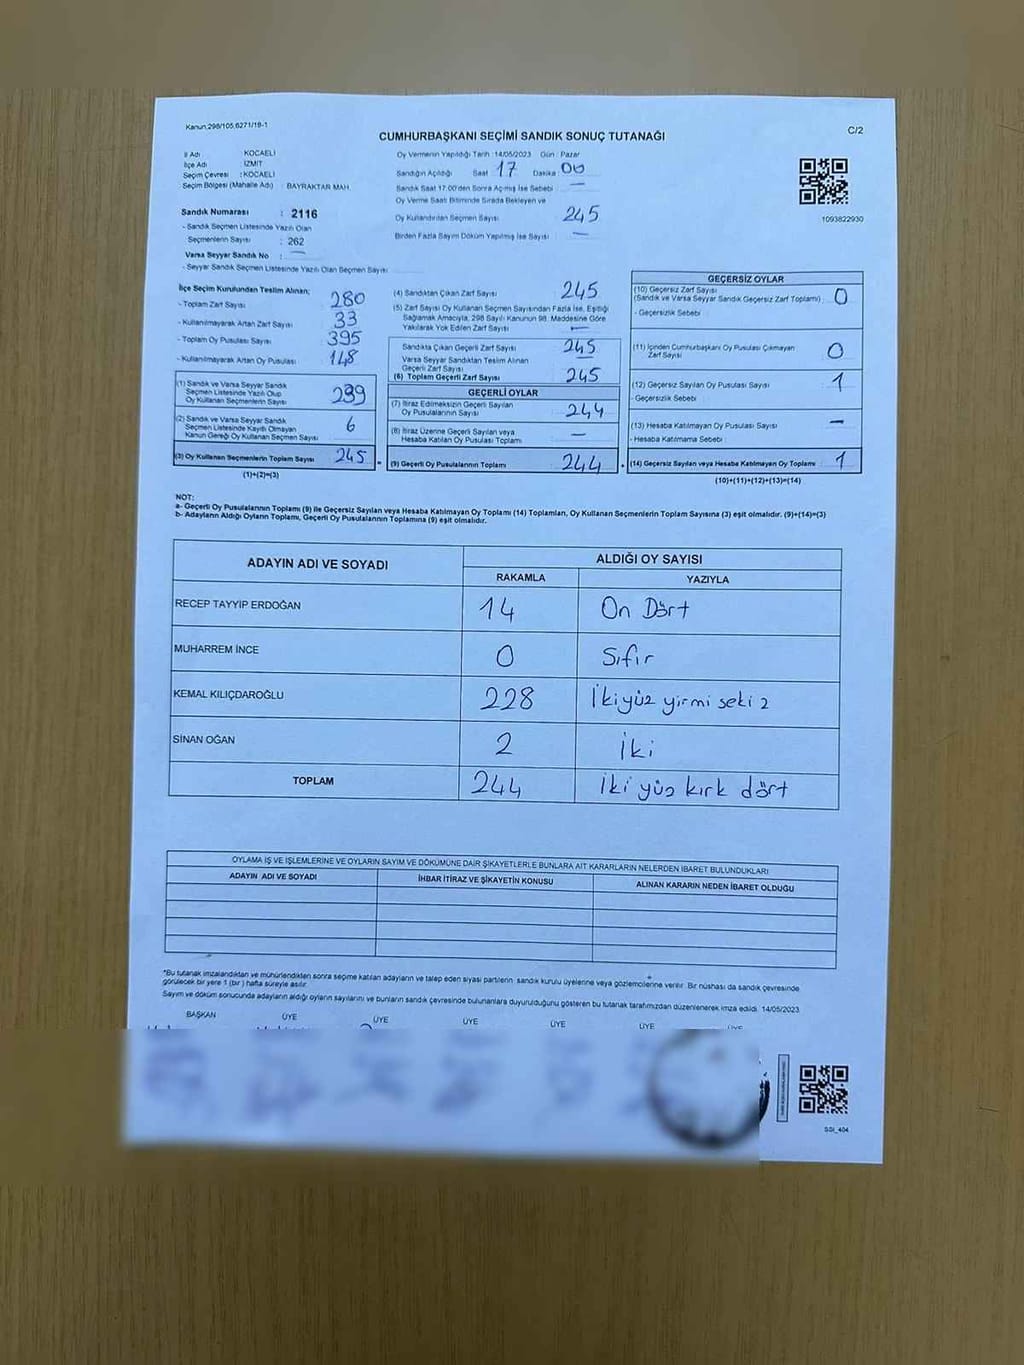 Kanun.298/105.6271/19-1
CUMHURBAŞKANI SEÇİMİ SANDIK SONUÇ TUTANAĞI
C/2
İl Adı : KOCAELİ
İlçe Adı : İZMİT
Seçim Çevresi : KOCAELİ
Seçim Bölgesi (Mahalle Adı) : BAYRAKTAR MAH.
Sandık Numarası : 2116
- Sandık Seçmen Listesinde Yazılı Olan
Seçmenlerin Sayısı : 262
Varsa Seyyar Sandık No : —
- Seyyar Sandık Seçmen Listesinde Yazılı Olan Seçmen Sayısı
Oy Vermenin Yapıldığı Tarih :14/05/2023 Gün : Pazar
Sandığın Açıldığı Saat 17 Dakika : 00
Sandık Saat 17.00'den Sonra Açılmış İse Sebebi —
Oy Verme Saati Bitiminde Sırada Bekleyen ve
Oy Kullandırılan Seçmen Sayısı 245
Birden Fazla Sayım Döküm Yapılmış İse Sayısı —
1093822930
İlçe Seçim Kurulundan Teslim Alınan;
- Toplam Zarf Sayısı 280
- Kullanılmayarak Artan Zarf Sayısı 33
- Toplam Oy Pusulası Sayısı 395
- Kullanılmayarak Artan Oy Pusulası 148
(1) Sandık ve Varsa Seyyar Sandık
Seçmen Listesinde Yazılı Olup
Oy Kullanan Seçmenlerin Sayısı 239
(2) Sandık ve Varsa Seyyar Sandık
Seçmen Listesinde Kayıtlı Olmayan
Kanun Gereği Oy Kullanan Seçmen Sayısı 6
(3) Oy Kullanan Seçmenlerin Toplam Sayısı 245
(1)+(2)=(3)
(4) Sandıktan Çıkan Zarf Sayısı 245
(5) Zarf Sayısı Oy Kullanan Seçmen Sayısından Fazla İse, Eşitliği
Sağlamak Amacıyla, 298 Sayılı Kanunun 98. Maddesine Göre
Yakılarak Yok Edilen Zarf Sayısı —
Sandıkta Çıkan Geçerli Zarf Sayısı 245
Varsa Seyyar Sandıktan Teslim Alınan
Geçerli Zarf Sayısı —
(6) Toplam Geçerli Zarf Sayısı 245
GEÇERLİ OYLAR
(7) İtiraz Edilmeksizin Geçerli Sayılan
Oy Pusulalarının Sayısı 244
(8) İtiraz Üzerine Geçerli Sayılan veya
Hesaba Katılan Oy Pusulası Toplamı —
(9) Geçerli Oy Pusulalarının Toplamı 244
GEÇERSİZ OYLAR
(10) Geçersiz Zarf Sayısı
(Sandık ve Varsa Seyyar Sandık Geçersiz Zarf Toplamı) 0
- Geçersizlik Sebebi
(11) İçinden Cumhurbaşkanı Oy Pusulası Çıkmayan
Zarf Sayısı 0
(12) Geçersiz Sayılan Oy Pusulası Sayısı 1
- Geçersizlik Sebebi
(13) Hesaba Katılmayan Oy Pusulası Sayısı —
- Hesaba Katılmama Sebebi
(14) Geçersiz Sayılan veya Hesaba Katılmayan Oy Toplamı 1
(10)+(11)+(12)+(13)=(14)
NOT:
a- Geçerli Oy Pusulalarının Toplamı (9) ile Geçersiz Sayılan veya Hesaba Katılmayan Oy Toplamı (14) Toplamları, Oy Kullanan Seçmenlerin Toplam Sayısına (3) eşit olmalıdır. (9)+(14)=(3)
b- Adayların Aldığı Oyların Toplamı, Geçerli Oy Pusulalarının Toplamına (9) eşit olmalıdır.
ADAYIN ADI VE SOYADI ALDIĞI OY SAYISI
RAKAMLA YAZIYLA
RECEP TAYYİP ERDOĞAN 14 On Dört
MUHARREM İNCE 0 Sıfır
KEMAL KILIÇDAROĞLU 228 İkiyüz yirmi sekiz
SİNAN OĞAN 2 İki
TOPLAM 244 İki yüz kırk dört
OYLAMA İŞ VE İŞLEMLERİNE VE OYLARIN SAYIM VE DÖKÜMÜNE DAİR ŞİKAYETLERLE BUNLARA AİT KARARLARIN NELERDEN İBARET BULUNDUKLARI
ADAYIN ADI VE SOYADI İHBAR İTİRAZ VE ŞİKAYETİN KONUSU ALINAN KARARIN NEDEN İBARET OLDUĞU
*Bu tutanak imzalandıktan ve mühürlendikten sonra seçime katılan adayların ve talep eden siyasi partilerin sandık kurulu üyelerine veya gözlemcilerine verilir. Bir nüshası da sandık çevresinde
görülecek bir yere 1 (bir) hafta süreyle asılır.
Sayım ve döküm sonucunda adayların aldığı oyların sayılarını ve bunların sandık çevresinde bulunanlara duyurulduğunu gösteren bu tutanak tarafımızdan düzenlenerek imza edildi. 14/05/2023
BAŞKAN ÜYE ÜYE ÜYE ÜYE ÜYE ÜYE
SSI_404